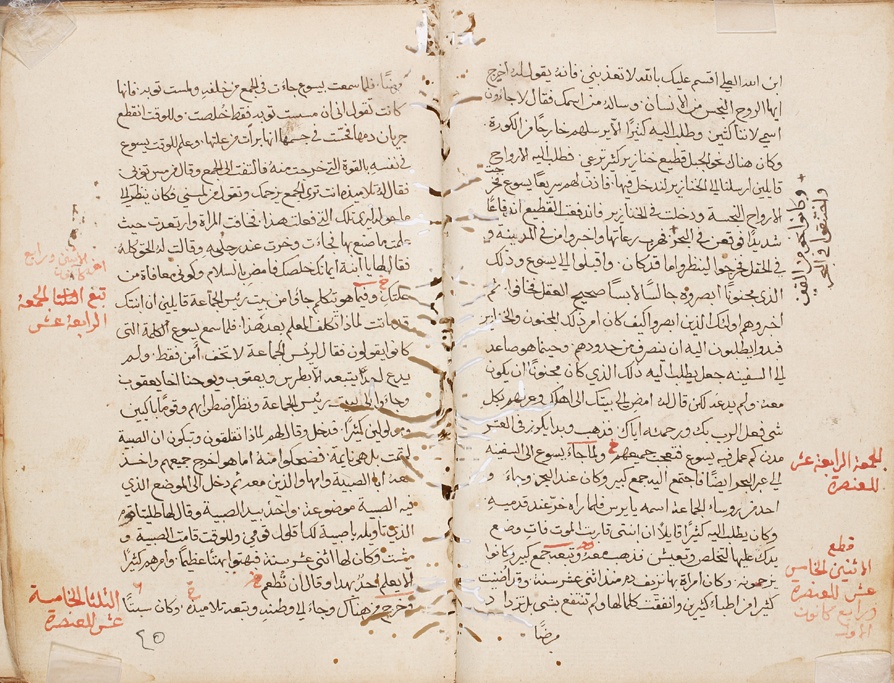 ابن الله العلي اقسم عليك بالله لا تعذبني فانه يقول له اخرج
ايها الروح النجس من الانسان وساله من اسمك فقال لاجاون
اسمي لاننا كثيرين وطلب اليه كثيرًا الا يرسلهم خارجًا من الكورة
وكان هناك نحو الجبل قطيع خنازير كثير ترعى فطلب اليه الارواح
قايلين ارسلنا الى الخنازير لندخل فيها فاذن لهم سريعًا يسوع فخرجت
الارواح النجسة ودخلت في الخنازير فاندفعت القطيع اندفاعًا
شديدًا فوقعن في البحر فهرب رعاتها واخبروا من في المدينة و
في الحقل فخرجوا لينظروا ما قد كان واقبلوا الى يسوع وذلك
الذي مجنونًا ابصروه جالسًا لابسًا صحيح العقل فخافوا ثم
اخبروهم اولئك الذين ابصروا كيف كان امر ذلك المجنون والخنازير
فبدوا يطلبون اليه ان ينصرف من حدودهم وحينما هو صاعد
الى السفينه جعل يطلب اليه ذلك الذي كان مجنونًا ان يكون
معه ولم يدعه لكن قال له امض الى بيتك الى اهلك وعرفهم بكل
شي فعل الرب بك ورحمته اياك فذهب وبدا يكرز في العشر
مدن كم عمل فيه يسوع فتعجب جميعهم ولما جاء يسوع الى السفينه
الى عبر البحر ايضًا فاجتمع اليه جمع كبير وكان عند البحر وجاء
احد من روساء الجماعة اسمه يايرس فلما راه خر عند قدميه
وكان يطلب اليه كثيرًا قايلًا ان ابنتي قاربت الموت فات وضع
يدك عليها لتخلص وتعيش فذهب معه وتبعه جمع كبير وكانوا
يزحمونه وكان امراة بها نزيف دم منذ اثني عشر سنة وقد اضنت
كثير من اطباء كثيرين وانفقت كلما لها ولم تنتفع بشي بل تزداد
مرضًا
وكانوا نحو من الفين
واختنقوا في البحر
الجمعة الرابعة عشر
للعنصرة
قطع
الاثنين الخامس
عشر للعنصرة
ورابع كانون
الاول
مرضًا فلما سمعت بيسوع جاءت في الجمع من خلفه ولمست ثوبه فانها
كانت تقول اني ان مسست ثوبه فقط خلصت وللوقت انقطع
جريان دمها فحست في جسمها انها برأت من علتها وعلم للوقت يسوع
في نفسه بالقوة التي خرجت منه فالتفت الى الجمع وقال من مس ثوبي
فقال له تلاميذه انت ترى الجمع يزحمك وتقول من لمسني فكان ينظر الى
ما حوله ليرى تلك التي فعلت هذا فخافت المراة وارتعدت حيث
علمت ما صنع بها فجاءت وخرت عند رجليه وقالت له الحق كله
فقال لها يا ابنة ايمانك خلصك فامض بالسلام وكوني معافاة من
علتك وفيما هو يتكلم جاؤا من بيت رئيس الجماعة قايلين ان ابنتك
قد ماتت لماذا تكلف المعلم بعد هذا فلما سمع يسوع الكلمة التي
كانوا يقولون فقال لرئيس الجماعة لا تخف آمن فقط ولم
يدع احدًا يتبعه الا بطرس ويعقوب ويوحنا اخا يعقوب
وجاء الى بيت رئيس الجماعة ونظر اضطرابهم وقومًا باكين
ومولولين كثيرًا فدخل وقال لهم لماذا تقلقون وتبكون ان الصبية
لم تمت بل هي نايمة فضحكوا منه اما هو اخرج جميعهم واخذ
معه ابا الصبية وامها والذين معه ثم دخل الى الموضع الذي
فيه الصبية موضوعة واخذ بيد الصبية وقال لها طليثا قوم
الذي تاويله يا صبية لك اقول قومي وللوقت قامت الصبية و
مشت وكان لها اثني عشر سنة فبهتوا بهتًا عظيمًا وامرهم كثيرًا
الا يعلم احدٌ بهذا وقال ان تُطعم
وخرج من هناك وجاء الى وطنه وتبعه تلاميذه وكان سبتًا
الاثنين ورابع
تبع الثلثا للجمعة
الرابعة عشر
الثلثا الخامسة
عشر للعنصرة